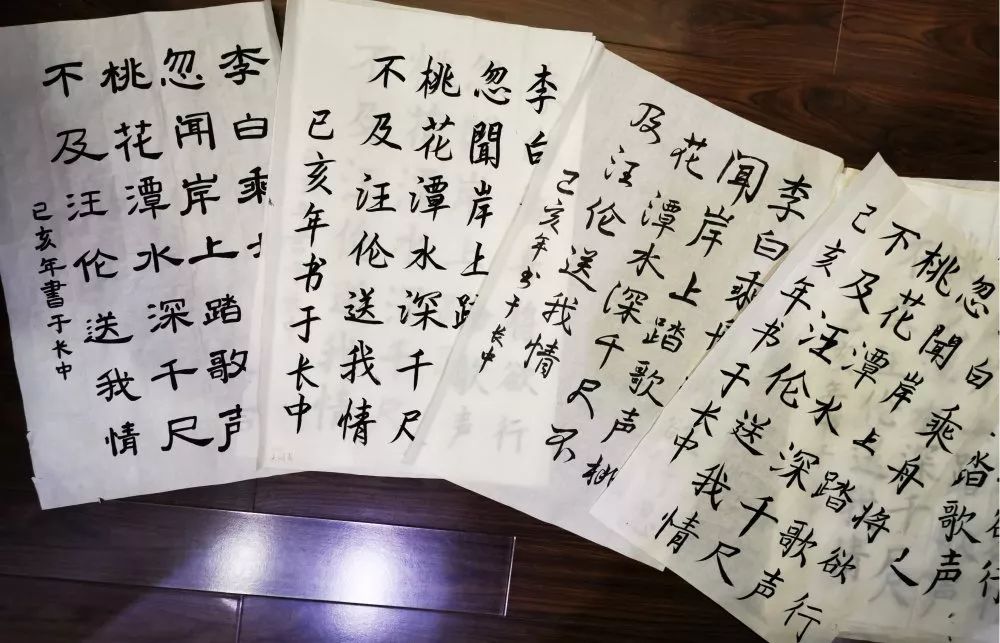 李白乘
忽闻岸上踏歌声
桃花潭水深千尺
不及汪伦送我情
己亥年書于长中
李白
忽聞岸上踏
桃花潭水深千尺
不及汪伦送我情
己亥年书于长中
李白乘
闻岸上踏歌声桃
花潭水深千尺不
及汪伦送我情
己亥年书于长中
白乘舟将欲行
忽聞岸上踏歌声
桃花潭水深千尺
不及汪伦送我情
己亥年书于长中
行
踏歌声
尺